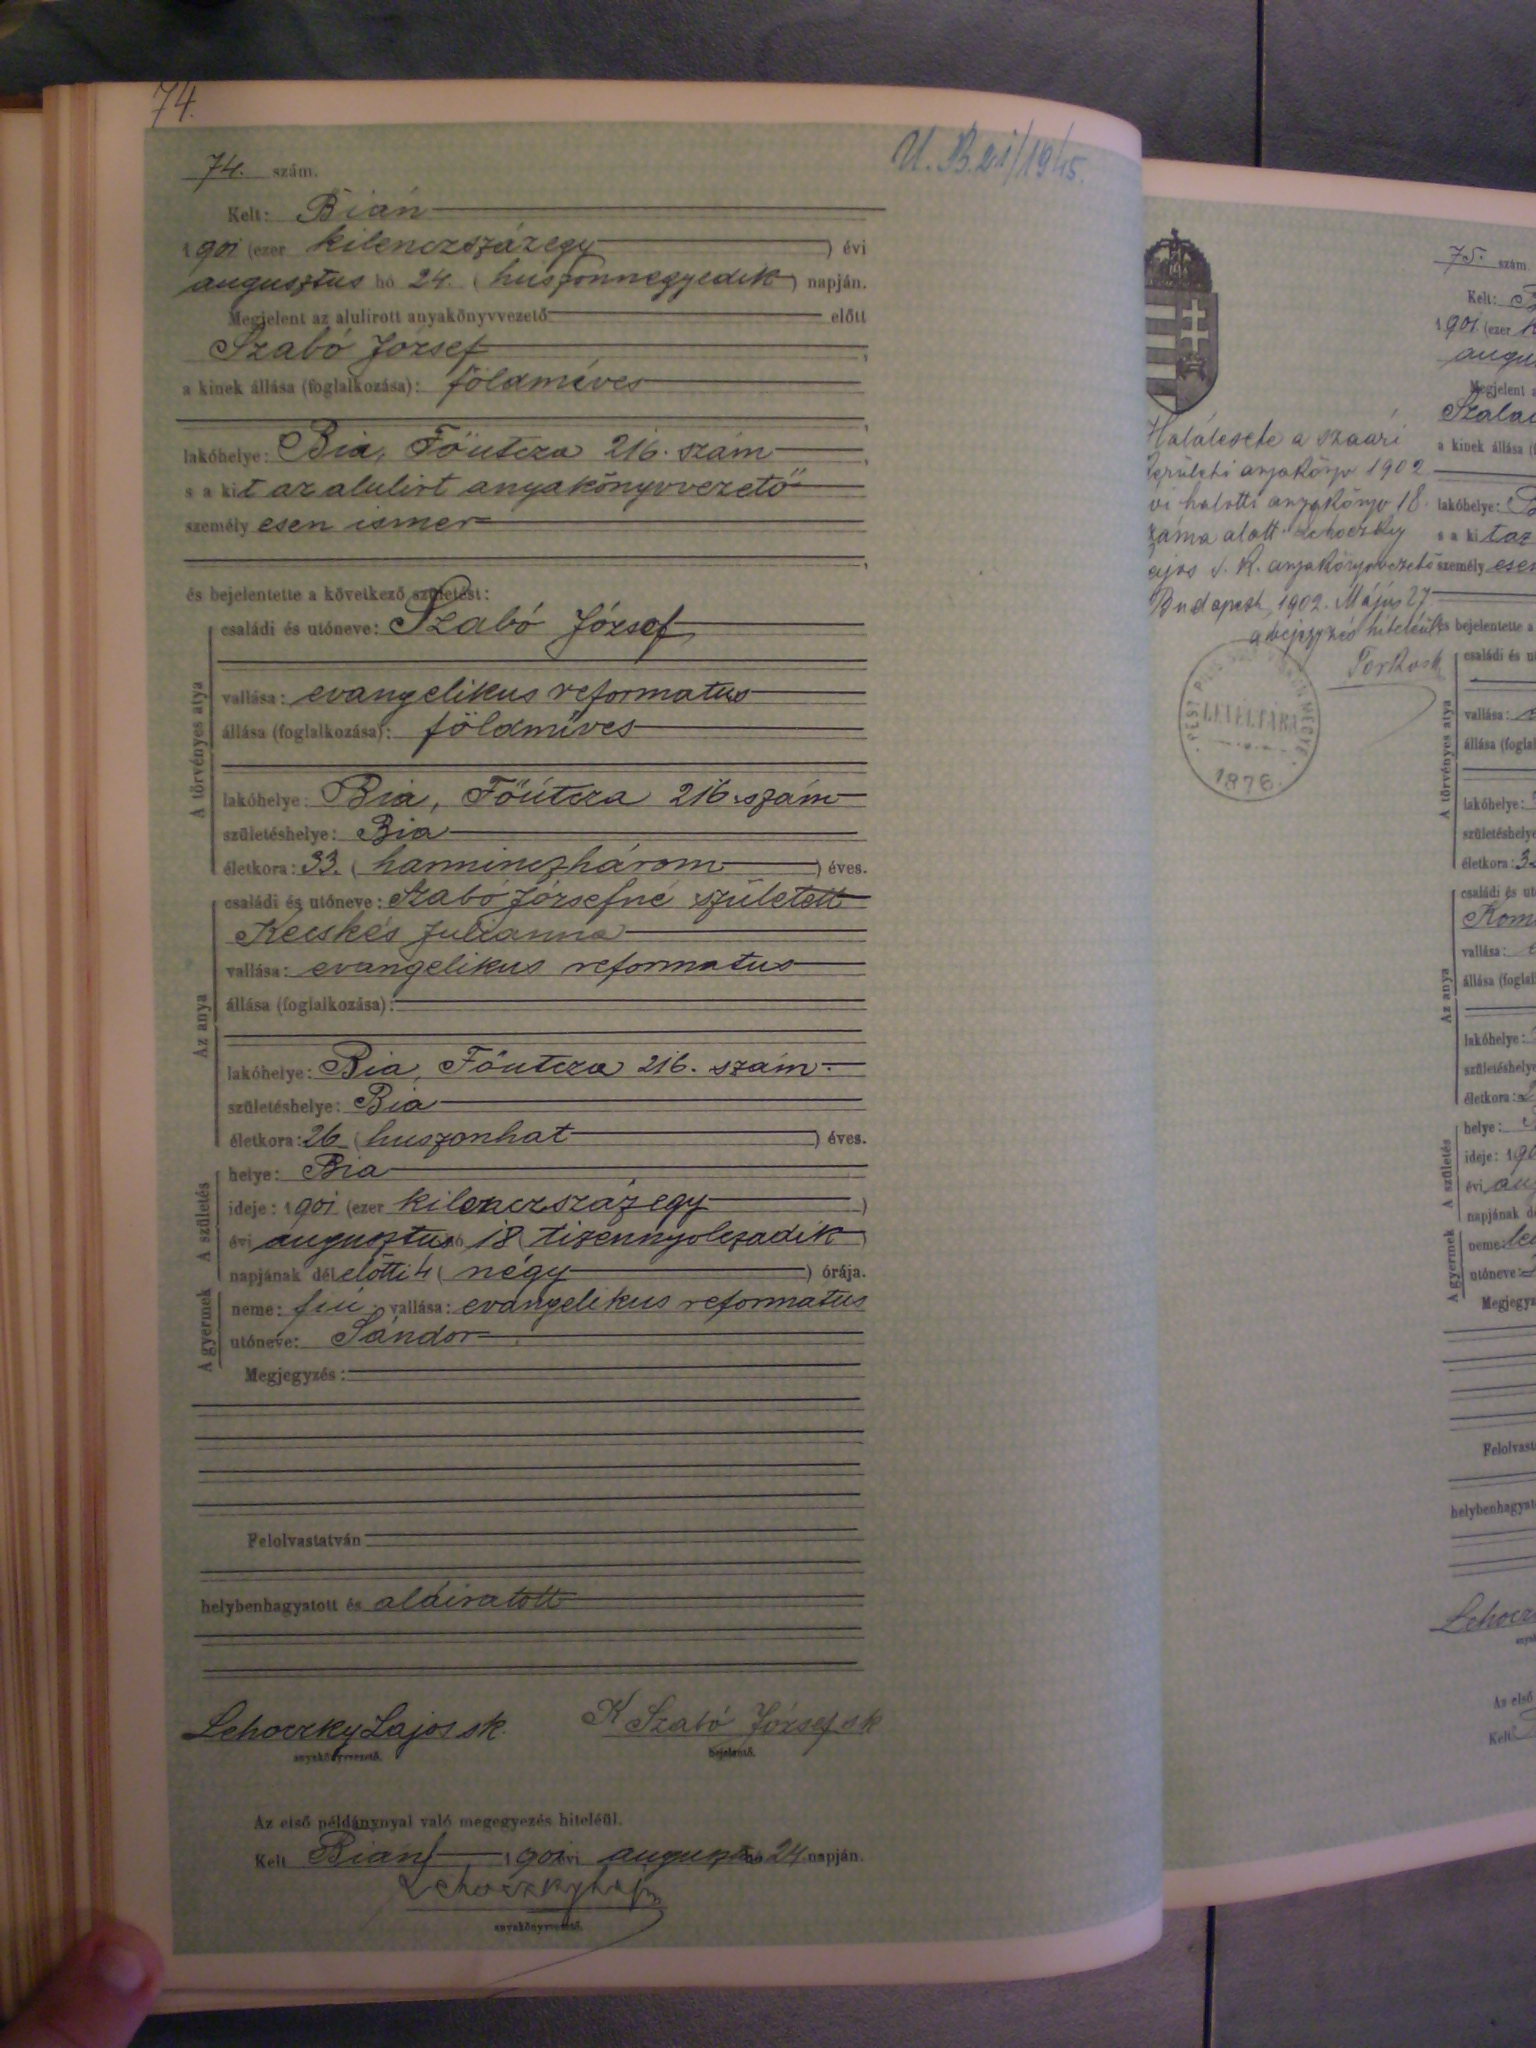 74.
74. szám.
U. B. 21/1945.
Kelt: Bián
1901 (ezer kilenczszázegy) évi
augusztus hó 24. (huszonnegyedik) napján.
Megjelent az alulírott anyakönyvvezető előtt
Szabó József,
a kinek állása (foglalkozása): földmíves
,
lakóhelye: Bia, Főutcza 216. szám,
s a kit az alulirt anyakönyvvezető
személyesen ismer
,
és bejelentette a következő születést:
A törvényes atya
családi és utóneve: Szabó József
vallása: evangelikus reformatus
állása (foglalkozása): földmíves
lakóhelye: Bia, Főútcza 216. szám
születéshelye: Bia
életkora: 33. (harminczhárom) éves.
Az anya
családi és utóneve: Szabó Józsefné született
Kecskés Julianna
vallása: evangelikus reformatus
állása (foglalkozása):
lakóhelye: Bia, Főutcza 216. szám.
születéshelye: Bia
életkora: 26 (huszonhat) éves.
A születés
helye: Bia
ideje: 1901 (ezer kilenczszázegy)
évi augusztus hó 18 (tizennyolczadik)
napjának délelőtti 4 (négy) órája.
A gyermek
neme: fiú vallása: evangelikus reformatus
utóneve: Sándor
Megjegyzés:
Felolvastatván
helybenhagyatott és aláiratott
Lehoczky Lajos sk. K Szabó József sk
anyakönyvvezető. bejelentő.
Az első példánynyal való megegyezés hiteléül.
Kelt Bián 1901 évi auguszt hó 24. napján.
Lehoczky Lajos
anyakönyvvezető.
Halálesete a szaári
kerületi anyakönyv 1902
vi halotti anyakönyv 18.
záma alatt Lehoczky
ajos s. k. anyakönyvvezető
Budapest, 1902. Május 27
a bejegyzés hiteléül:
PEST PILIS
MEGYE
LEVÉLTÁRA
1876.
75. szám.
Kelt:
1901 (ezer
augu
Megjelent a
Szala
a kinek állása (f
lakóhelye:
s a kit az
személy esen
és bejelentette a
A törvényes atya
családi és ut
vallása:
állása (foglal
lakóhelye:
születéshelye
életkora: 3
Az anya
családi és ut
Kom
vallása:
állása (foglal
lakóhelye:
születéshelye
életkora:
A születés
helye:
ideje: 190
évi au
napjának dé
A gyermek
neme: le
utóneve:
Megjegyz
Felolvast
helybenhagyat
Lehocz
anya
Az első
Kelt